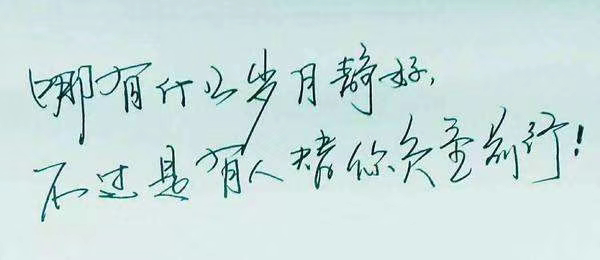 哪有什么岁月静好,
不过是有人替你负重前行!